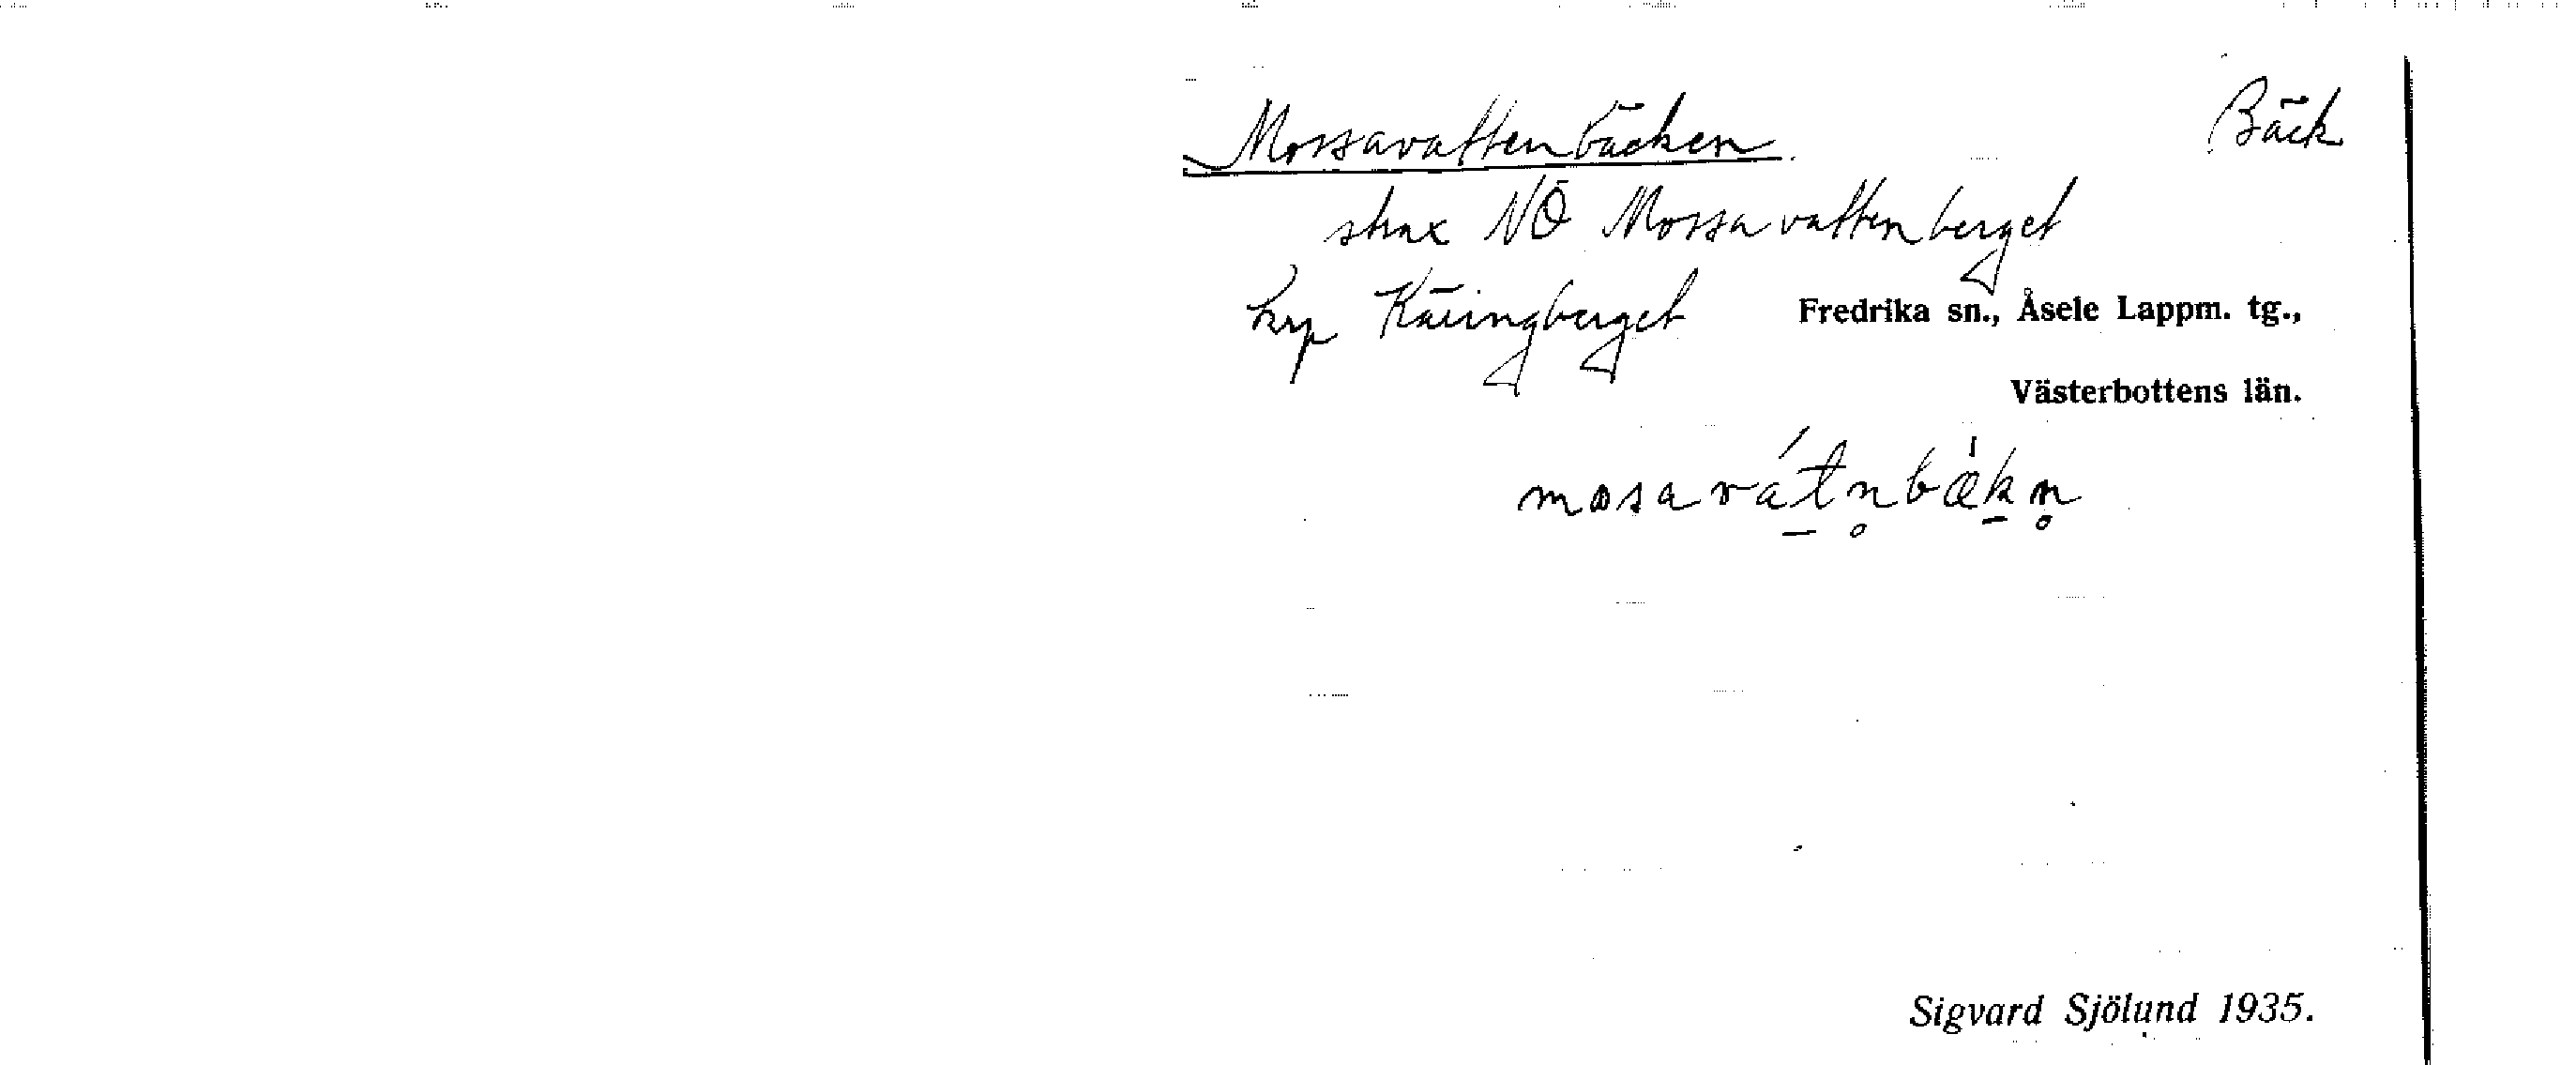 Mossavattenbäcken. Bäck
strax NÖ Mossavattenberget
krp Käringberget Fredrika sn., Åsele Lappm. tg.,
Västerbottens län.
mosavát̲n̥bæ̀k̲n̥
Sigvard Sjölund 1935.